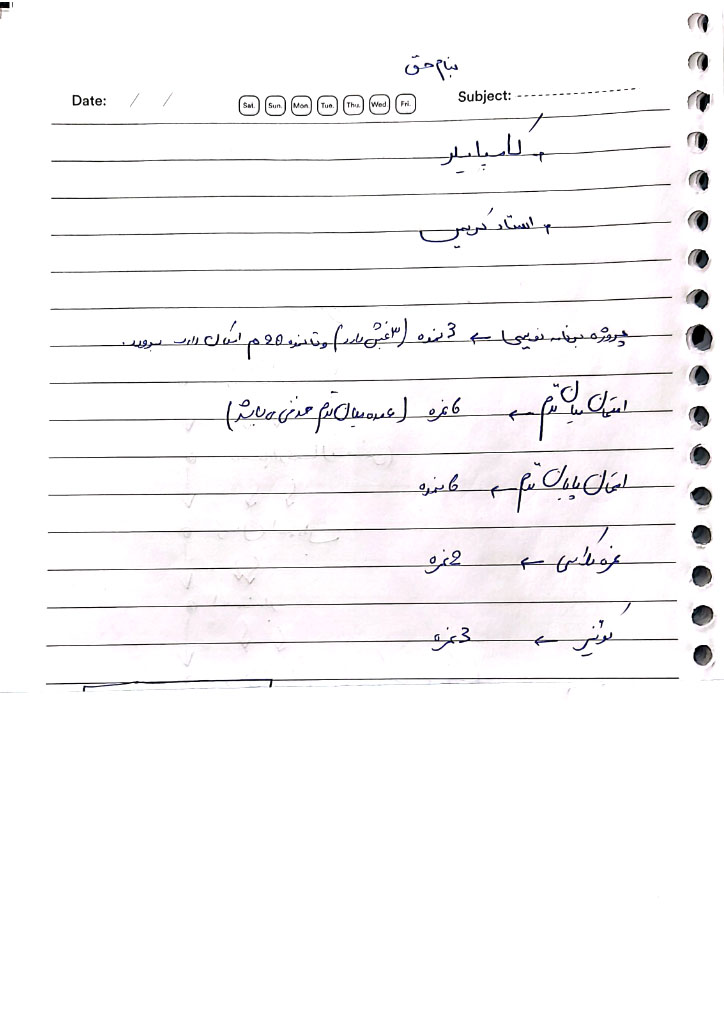 بنام حق
Date: / / Sat. Sun. Mon. Tue. Thu. Wed Fri. Subject:
کامپایلر
استاد کریمی
پروژه برنامه نویسی ← 3 نمره (۳ بخش دارد) و تا نمره 20 هم امکان دارد برود.
امتحان میان ترم ← 6 نمره (نمره میان ترم حذفی می‌باشد)
امتحان پایان ترم ← 6 نمره
نمره کلاسی ← 2 نمره
کوئیز ← 3 نمره